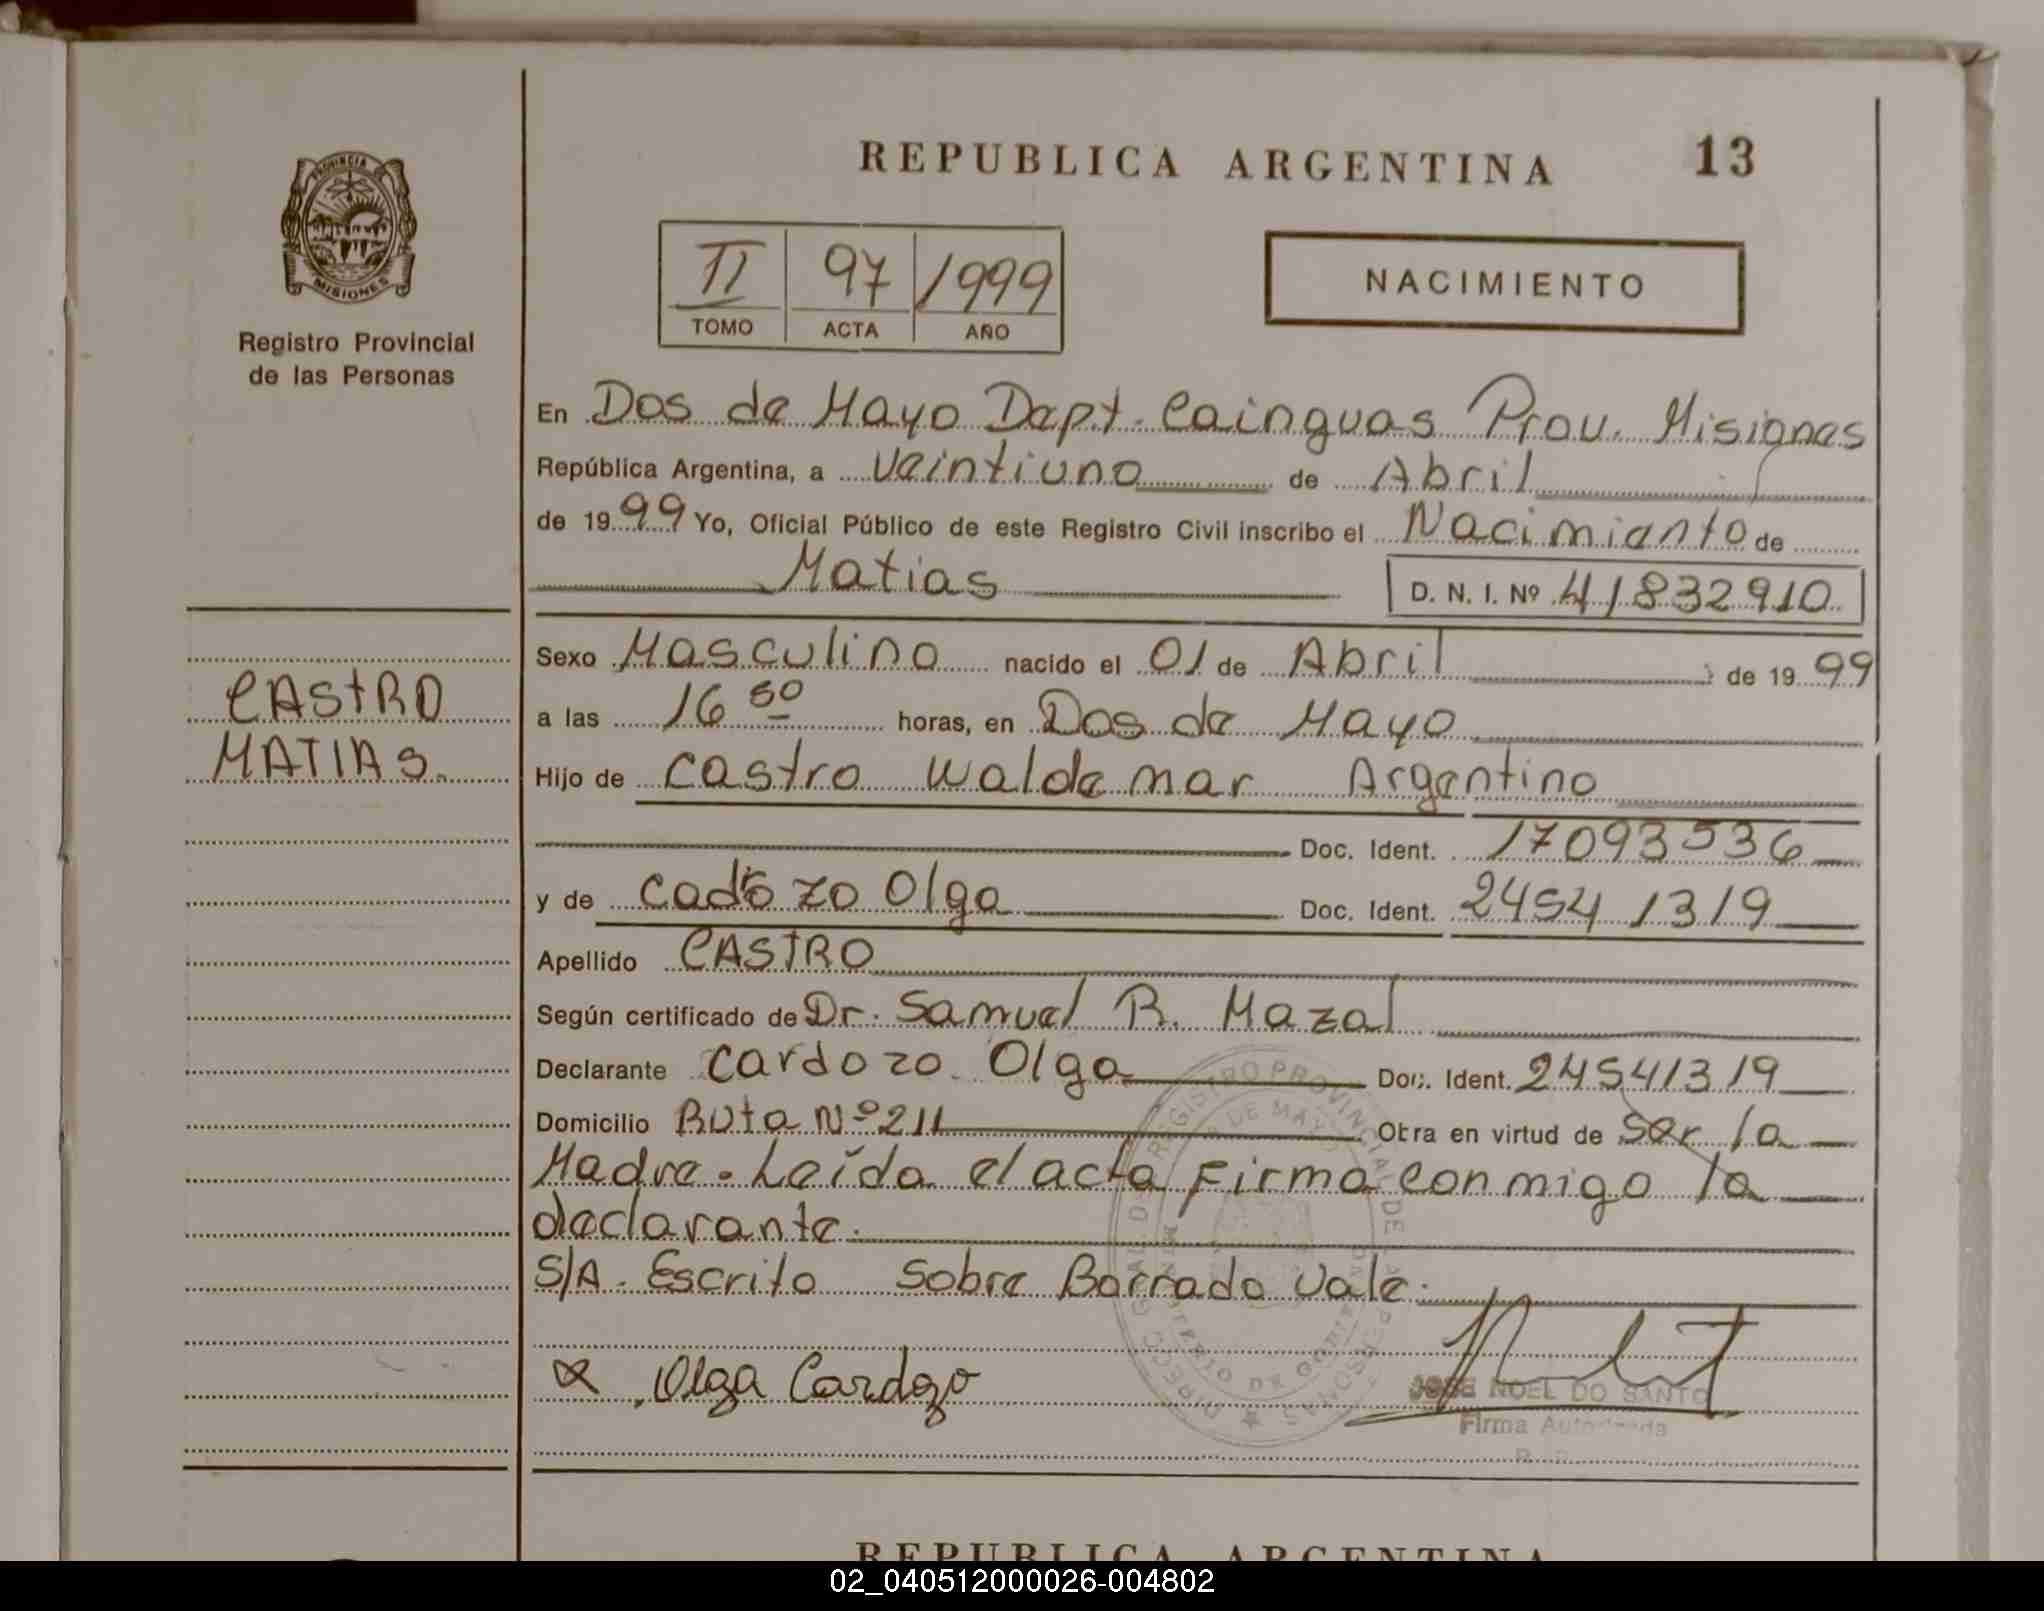 REPUBLICA ARGENTINA 13
PROVINCIA
MISIONES
Registro Provincial
de las Personas
II 97 1999
TOMO ACTA AÑO
NACIMIENTO
En Dos de Mayo Dept. Cainguas Prov. Misiones
República Argentina, a Veintiuno de Abril
de 1999 Yo, Oficial Público de este Registro Civil inscribo el Nacimiento de
Matias D. N. I. Nº 41832910
Sexo Masculino nacido el 01 de Abril de 1999
CASTRO
a las 16 50 horas, en Dos de Mayo
MATIAS.
Hijo de Castro Waldemar Argentino
Doc. Ident. 17093536
y de Cadrozo Olga Doc. Ident. 24541319
Apellido CASTRO
Según certificado de Dr. Samuel R. Mazal
Declarante Cardozo Olga Doc. Ident. 24541319
Domicilio Ruta Nº 211 Obra en virtud de Ser la
Madre. Leída el acta Firma Conmigo la
declarante.
S/A. Escrito Sobre Borrado Vale.
Olga Cardozo
JOSE NOEL DO SANTO
Firma Autorizada
REPUBLICA ARGENTINA
02_040512000026-004802